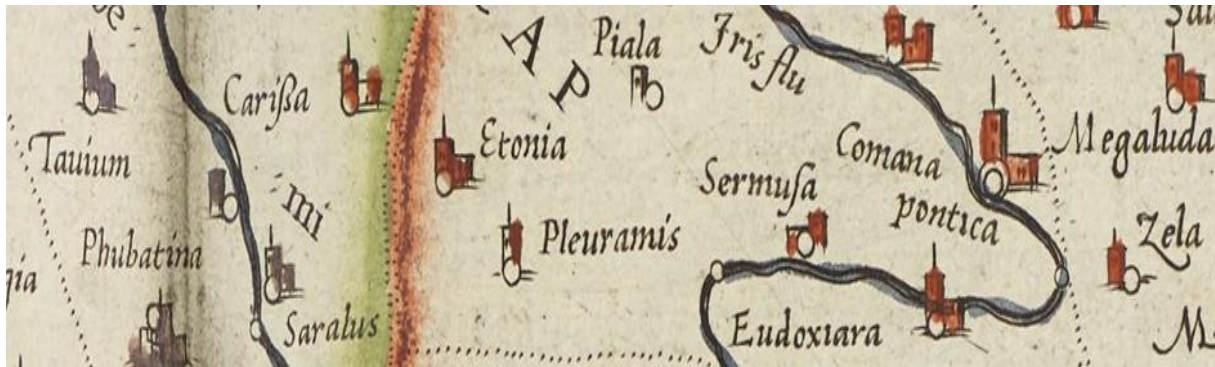 Cariſsa
Tauium
Phubatina
mi
Saralus
gia
A
P
Piala
Etonia
Pleuramis
Iris flu
Sermuſa
Comana
pontica
Eudoxiara
Megaluda
Zela
M